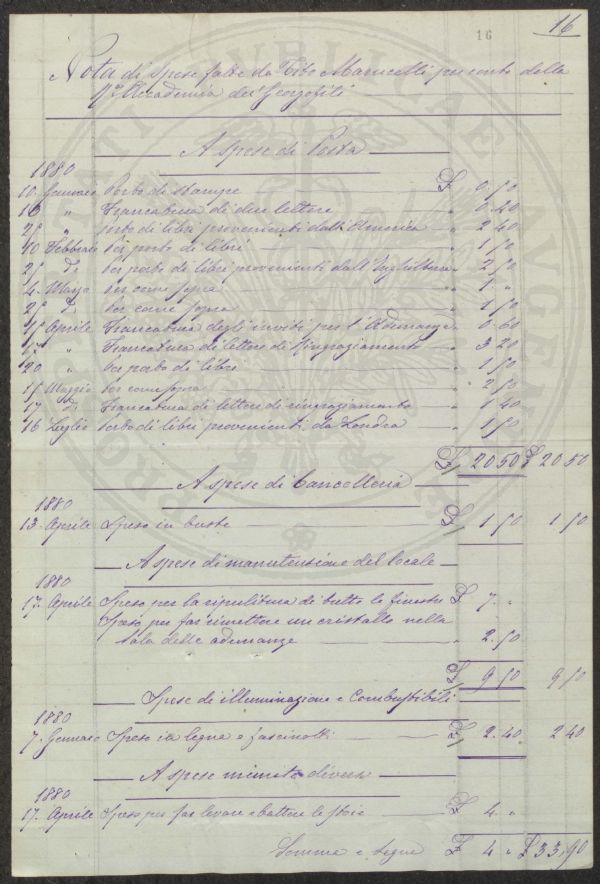 16
16
Nota di Spese fatte da Tito Marucelli per conto della
Rª Accademia dei Georgofili
A spese di Posta
1880
10 Gennaio Porto di stampe £ 0,50
16 " Francatura di due lettere " 0.40
" porto di libri provenienti dall'America " 2.40
10 Febbraio Per porto di libri " 1,50
di Per porto di libri provenienti dall'Inghilterra " 2,50
4. Marzo Per come sopra " 1. "
di Per come sopra " 1,50
Aprile Francatura degli inviti per l'Adunanza " 0.60
" Francatura di lettere di Ringraziamento " 3 20
20 " Per porto di libri " 1,50
15 Maggio Per come sopra " 2,50
17 di Francatura di lettere di ringraziamento " 1.40
16 Luglio Porto di libri provenienti da Londra " 1,50
£ 20 50 £ 20 50
A spese di Cancelleria
1880
13. Aprile Spese in buste £ 1,50 1 50
A spese di manutensione del locale
1880
17. Aprile Spese per la ripulitura di tutte le finestre £ 7. "
Speso per far rimettere un cristallo nella
Sala delle adunanze " 2.50
£ 9 50 9 50
Spese di illuminazione e Combustibili
1880
7. Gennaio Spese in legna e fascinotti £ 2.40 2 40
A spese minute diverse
1880
17. Aprile Speso per far levare e battere le stoie £ 4. "
Somma e segue £ 4 " £ 33,90